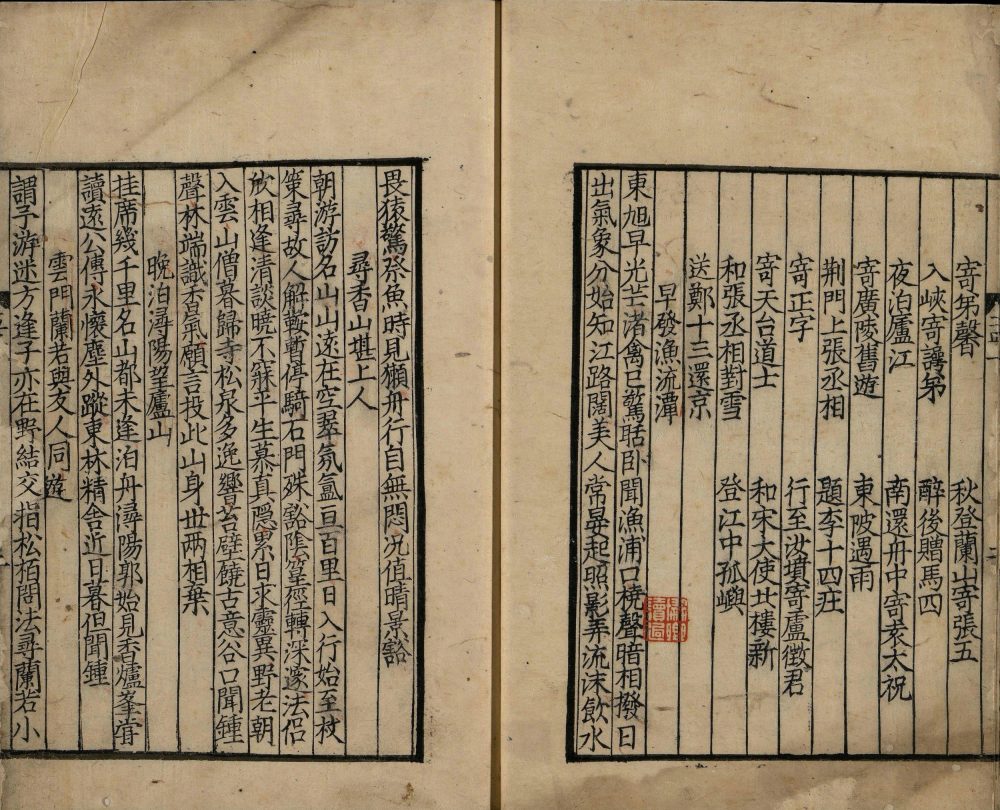 寄弟馨　秋登蘭山寄張五
入峽寄弟　醉後贈馬四
夜泊廬江　南還舟中寄袁太祝
寄廣陵舊遊　東陂遇雨
荆門上張丞相　題李十四庄
寄正字　行至汝墳寄盧徵君
寄天台道士　和宋大使北樓新
和張丞相對雪　登江中孤嶼
送鄭十三還京
早發漁流潭
東旭早光芒渚禽已驚聒卧聞漁浦口橈聲暗相撥日
出氣象分始知江路闊美人常晏起照影弄流沫飲水
畏猿驚祭魚時見獺舟行自無悶况值晴景豁
尋香山堪上人
朝游訪名山山遠在空翠氛氳亘百里日入行始至杖
策尋故人解鞍暫停騎石門殊豁險篁徑轉深邃法侶
欣相逢清談曉不寐平生慕真隱累日求靈異野老朝
入雲山僧暮歸寺松泉多逸響苔壁饒古意谷口聞鍾
聲林端識香氣願言投此山身世兩相棄
晚泊潯陽望廬山
挂席幾千里名山都未逢泊舟潯陽郭始見香爐峯甞
讀遠公傳永懷塵外蹤東林精舍近日暮但聞鍾
雲門蘭若與友人同遊
謂子游迷方逢子亦在野結交指松栢問法尋蘭若小